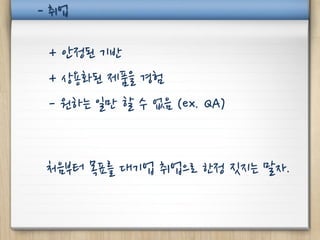 - 취업
+ 안정된 기반
+ 상용화된 제품을 경험
- 원하는 일만 할 수 없음 (ex. QA)
처음부터 목표를 대기업 취업으로 한정 짓지는 말자.